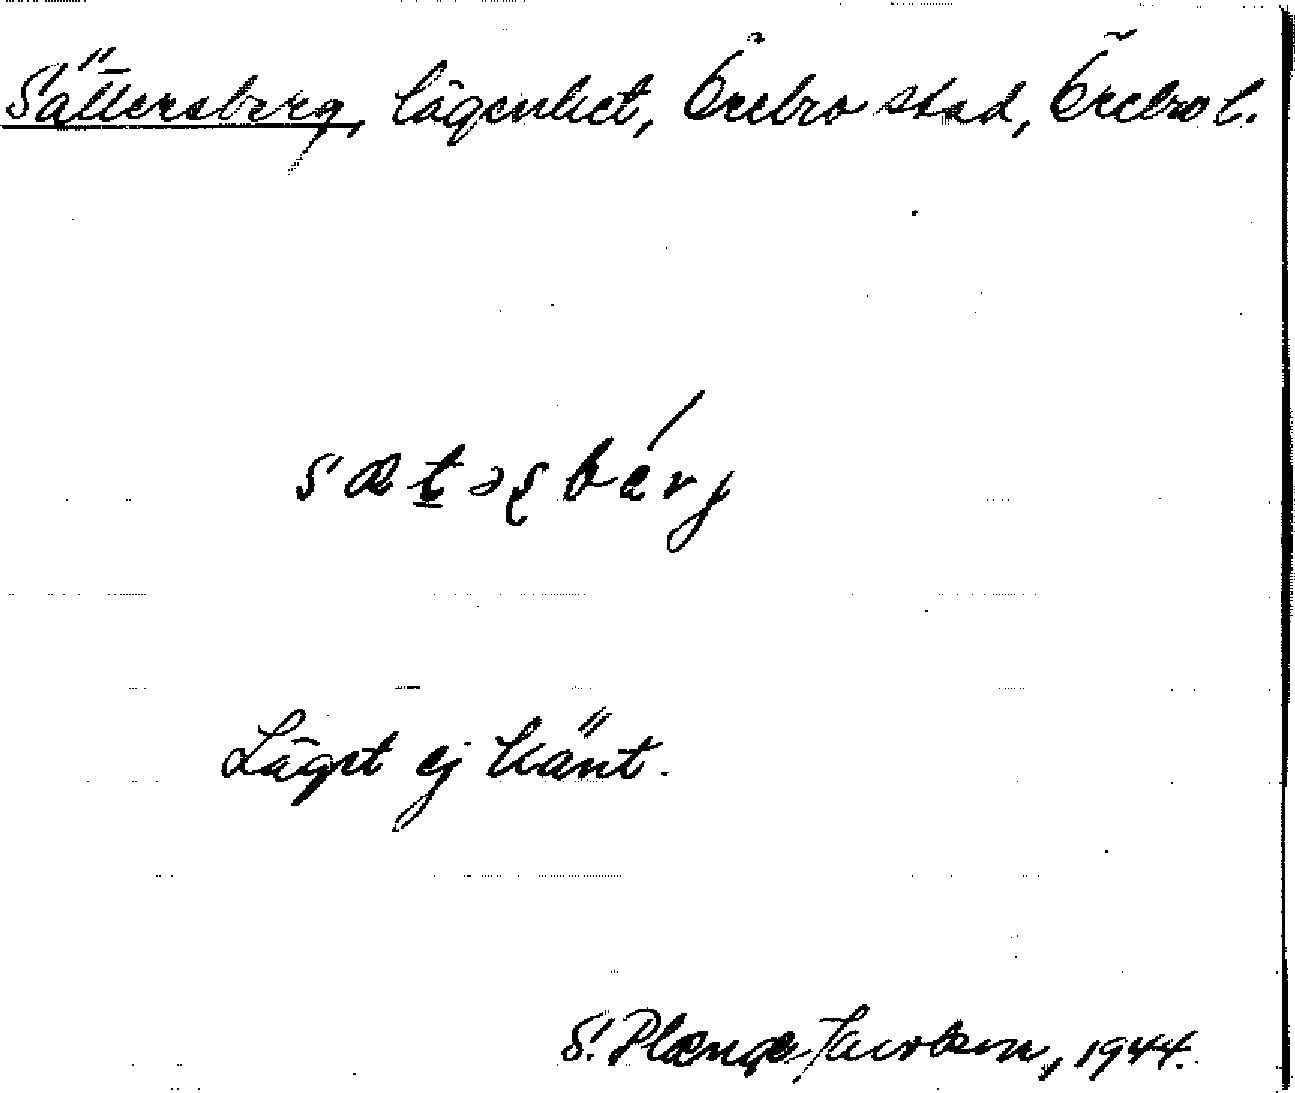 Sättersberg, lägenhet, Örebro stad, Örebro l.
sætəʂbérj
Läget ej känt.
S. Plænge Jacobson, 1944.